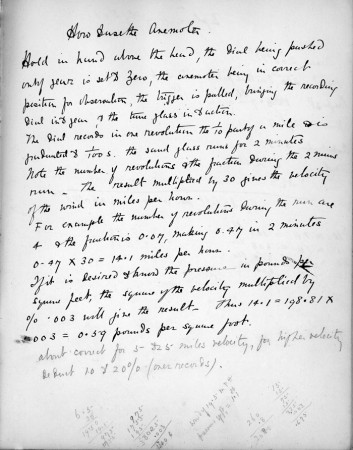 How to use the Anemometer
Hold in hand above the head, the dial being pushed
out of gear & set to Zero, the anemometer being in correct
position for observation, the trigger is pulled, bringing the recording
dial in gear & the time glass in action.
The dial records in one revolution the 1/10 part of a mile & is
graduated to 100s. the sand glass runs for 2 minutes
Note the number of revolutions & the fraction during the 2 mins
run - The result multiplied by 30 gives the velocity
of the wind in miles per hour.
For example the number of revolutions during the run are
4 & the fraction is 0.07, making 0.47 in 2 minutes
0.47 X 30 = 14.1 miles per hour.
If it is desired to know the pressure in pounds per
square feet, the square of the velocity multiplied by
.003 will give the result - Thus 14.1 = 198.81 X
.003 = 0.59 pounds per square foot.
about correct for 5 to 25 miles velocity, for higher velocity
deduct 10 to 20% (over records).